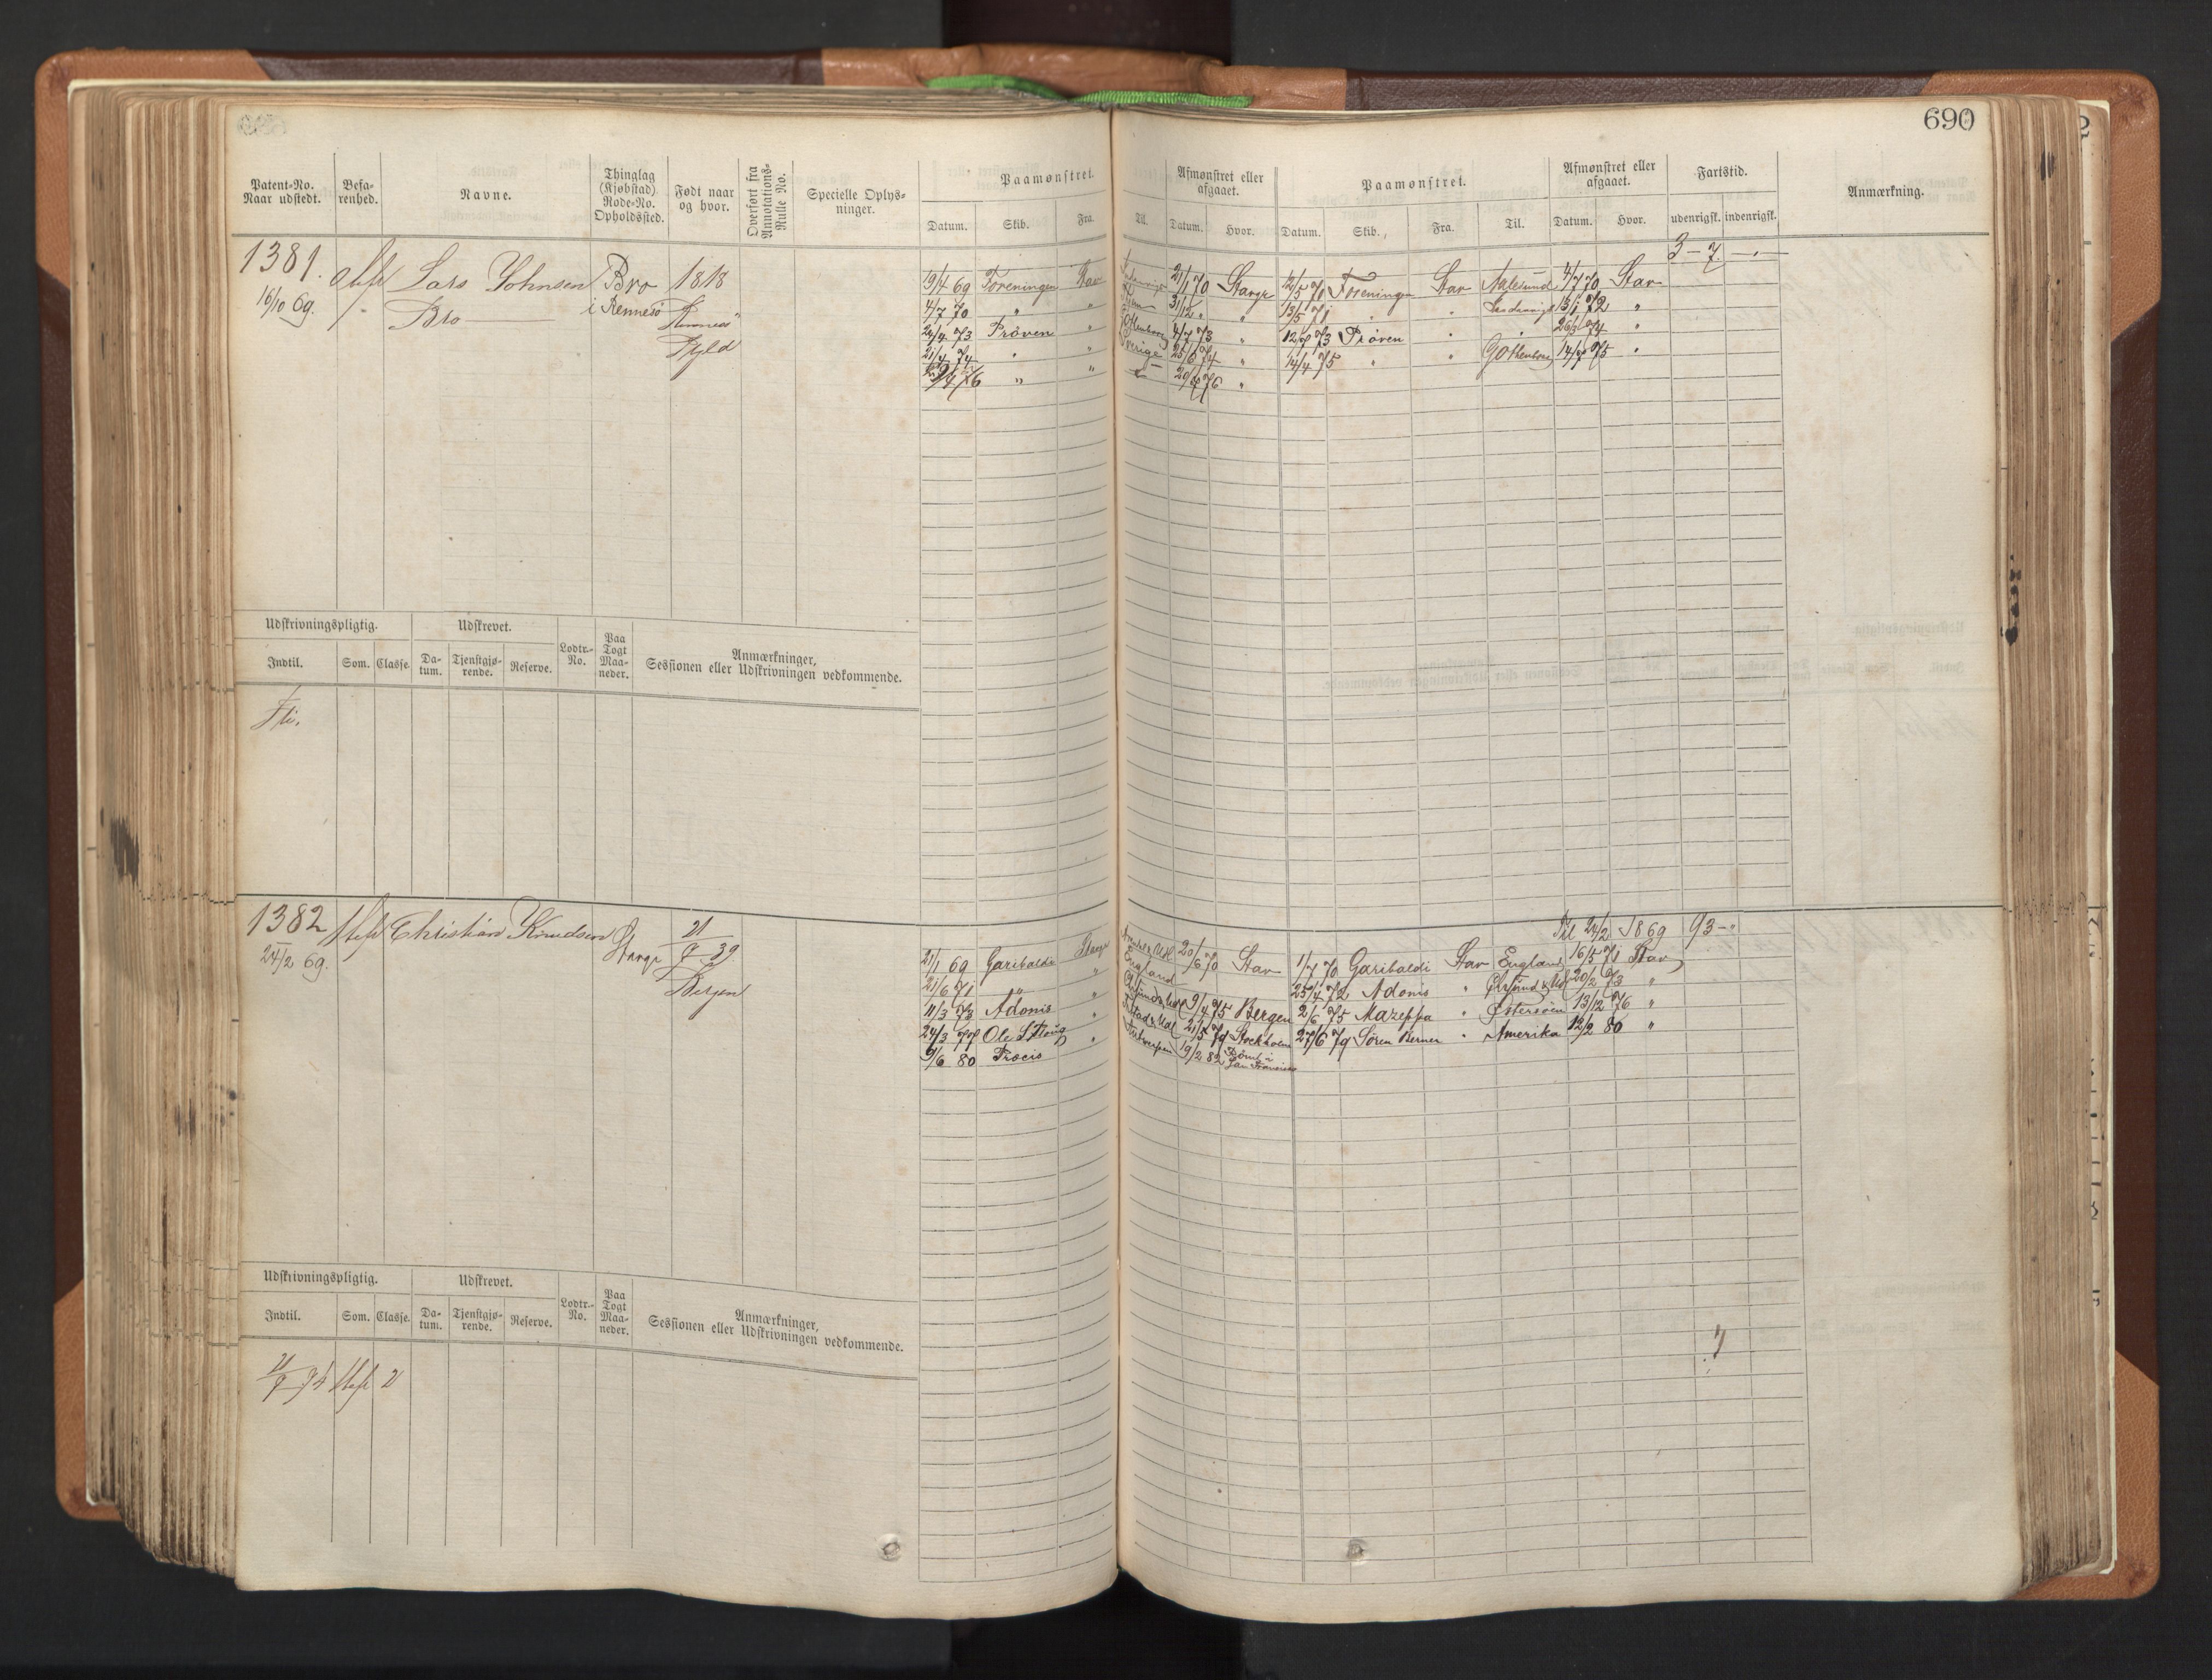 690
Patent-No. Naar udstedt.
Befarenhed.
Navne.
Thinglag (Kjøbstad) Rode-No. Opholdssted.
Født naar og hvor.
Overført fra Annotations-Rulle No.
Specielle Oplysninger.
Paamønstret.
Datum. Skib. Fra. Til.
Afmønstret eller afgaaet.
Datum. Hvor.
Paamønstret.
Datum. Skib. Fra. Til.
Afmønstret eller afgaaet.
Datum. Hvor.
Fartstid.
udenrigsk. indenrigsk.
Anmærkning.
3 - 7.
1381. Lars Johnsen Bro 1818
16/10 69. Bro i Rennesø
19/4 69 Foreningen Stav 21/1 70 Stavgr 12/5 70 Foreningen Stav Aalesund 4/7 70 Stav
4/7 70 " " 31/12 " " 13/5 71 " " 13/1 72 "
24/4 73 Prøven " 4/7 73 " 12/7 73 Prøven " 26/3 74 "
21/4 74 " " Sverige 25/6 74 " 14/4 75 " " Gothenborg 14/7 75 "
76 " " 76 "
Udskrivningspligtig. Udskrevet.
Indtil. Som. Classe. Datum. Tjenstgjørende. Reserve.
Lodtr.-No.
Paa Togt Maaneder.
Anmærkninger, Sessionen eller Udskrivningen vedkommende.
Til 24/2 1869 93 - "
1382 Christian Knudsen Stavgr 21/9 39
24/2 69. Bergen
21/1 69 Garibaldi Stavgr 20/6 70 Stav 1/7 70 Garibaldi Stav England 16/5 71 Stav
21/6 71 " " England 25/4 72 Adonis " 20/2 73 "
11/3 73 Adonis " 9/4 75 Bergen 2/6 75 Mazeppa " Østersøen 13/12 76 "
24/3 77 Ole " 21/5 79 Stockholm 27/6 79 Søren Berner " Amerika 12/2 80 "
9/6 80 " Antwerpen 19/2 82 Rømt i San Francisco
Udskrivningspligtig. Udskrevet.
Indtil. Som. Classe. Datum. Tjenstgjørende. Reserve.
Lodtr.-No.
Paa Togt Maaneder.
Anmærkninger, Sessionen eller Udskrivningen vedkommende.
2